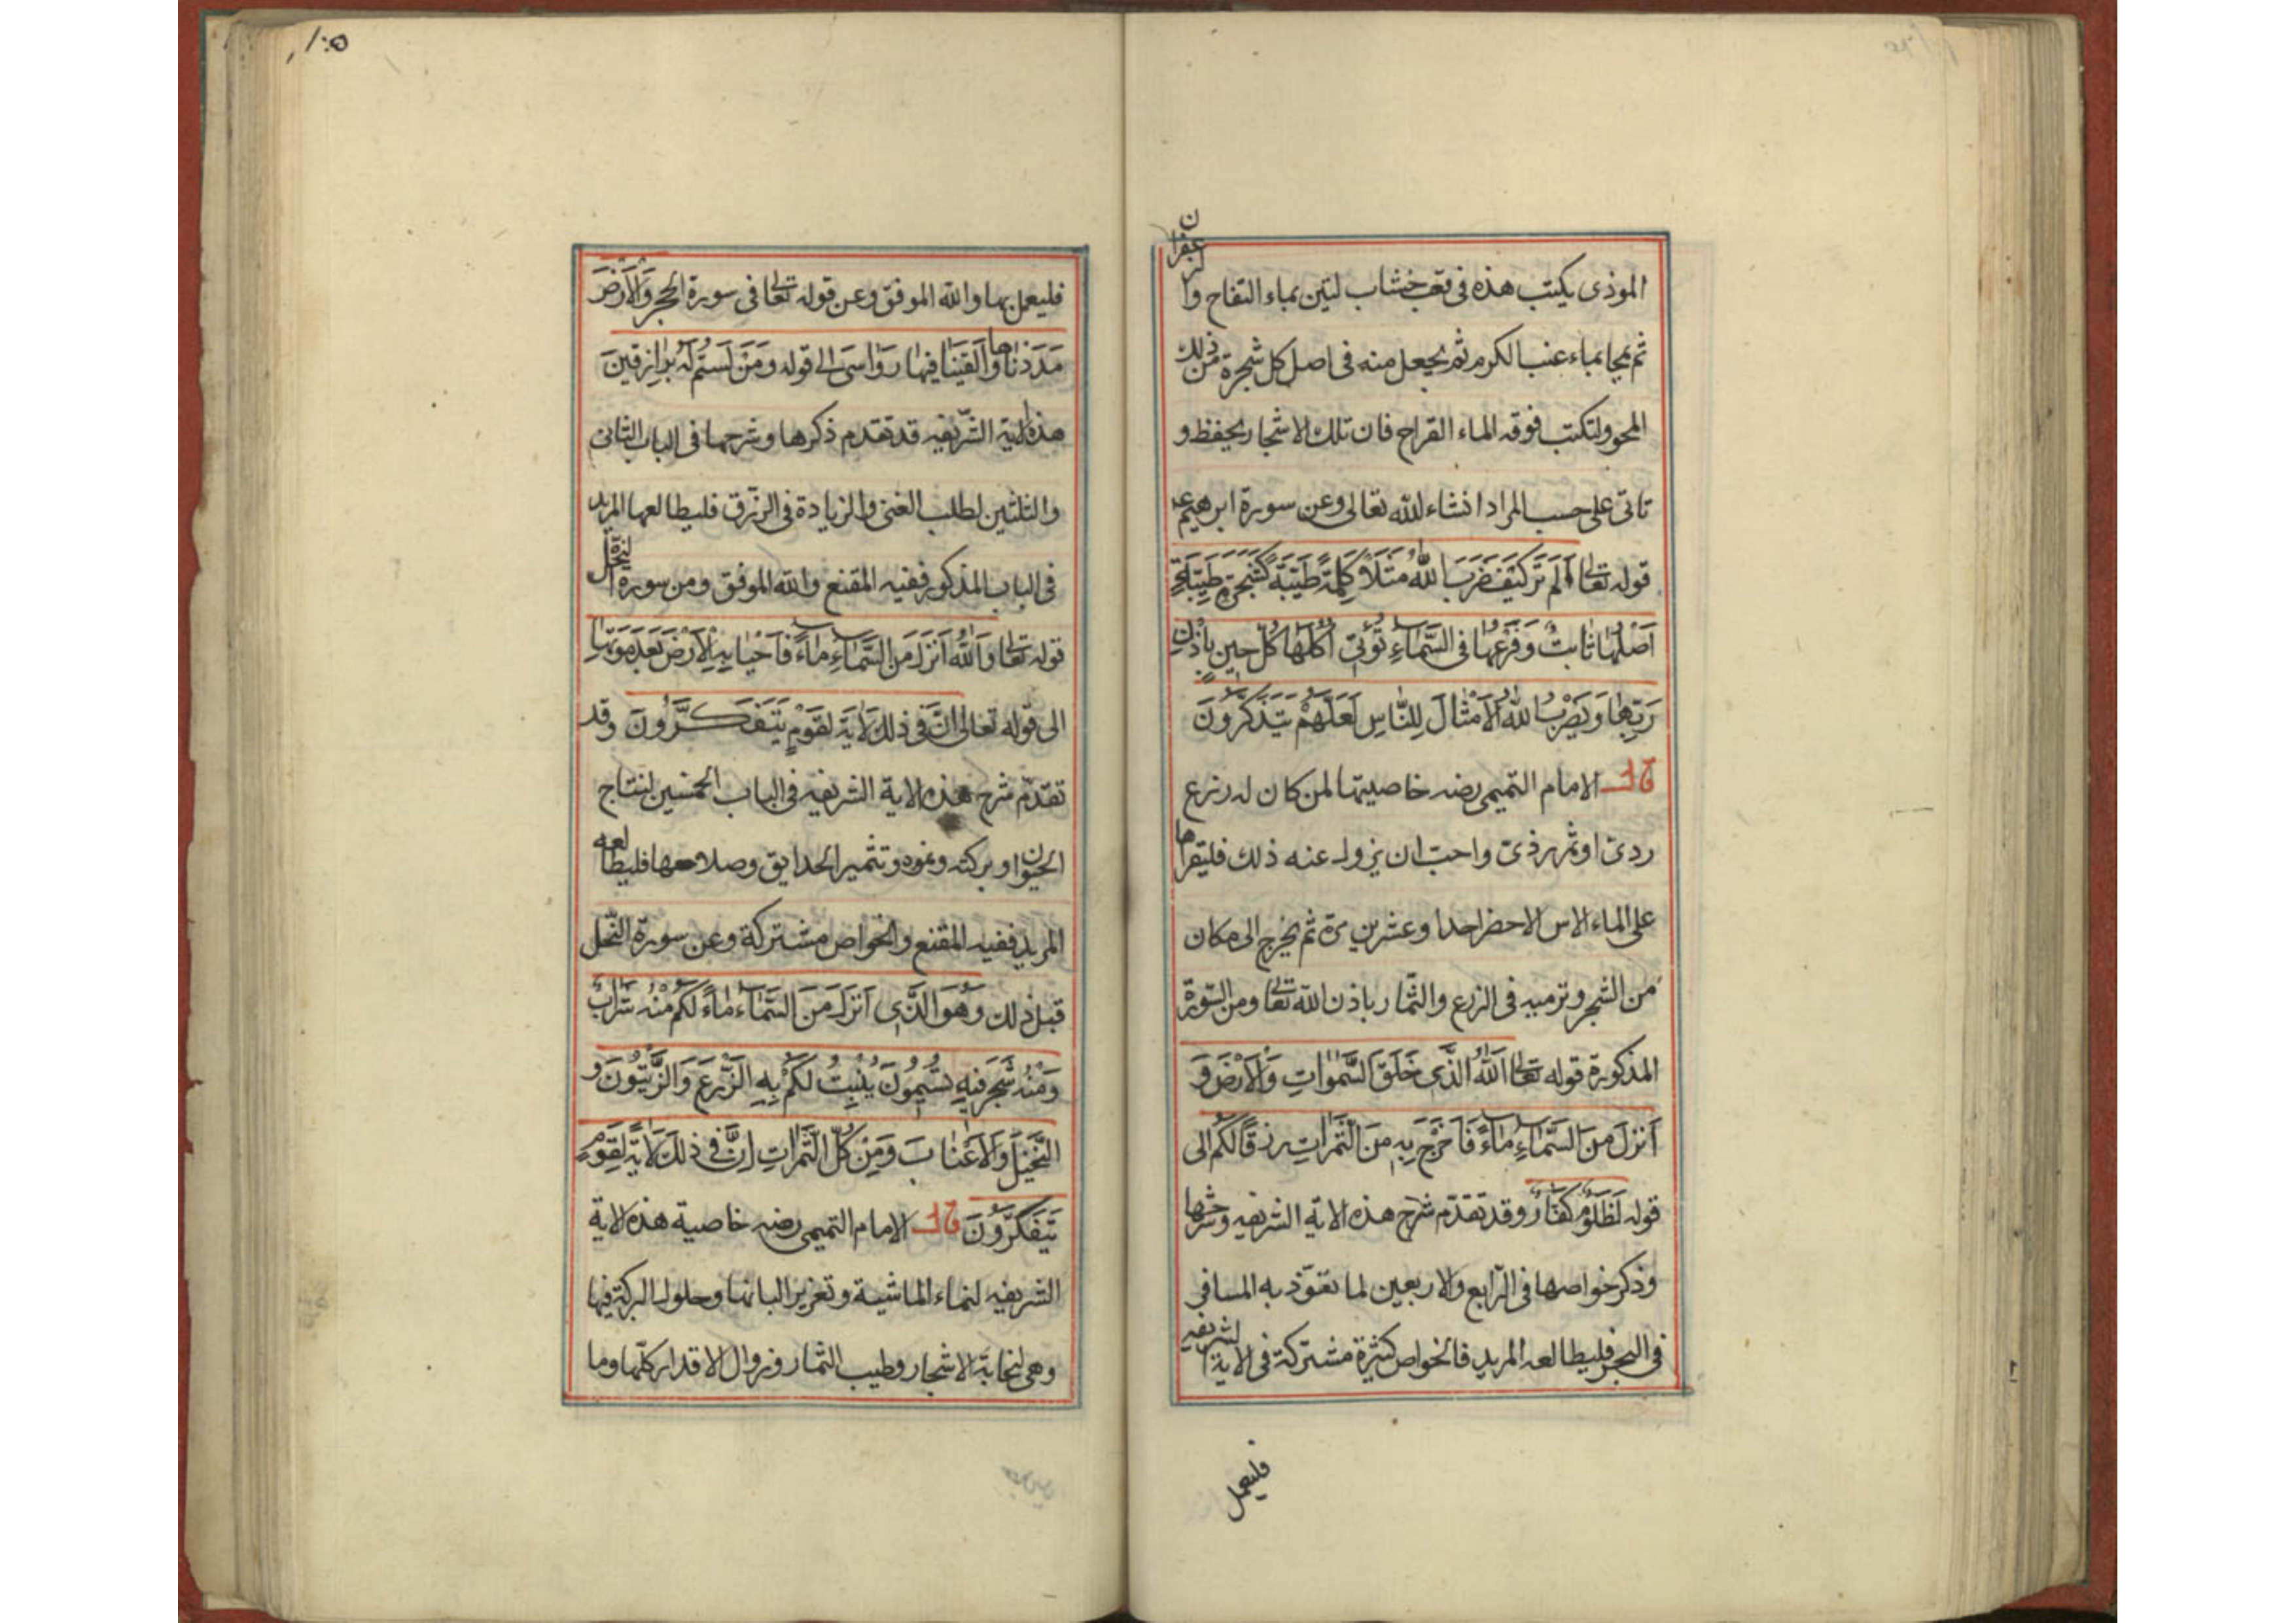 الموذى يكتب هذه فى قعب خشاب لتين بماء التفاح والزعفران
ثم يمحا بماء عنب الكرم ثم يجعل منه فى اصل كل شجرة من ذلك
المحو ولتكتب فوقه الماء القراح فان تلك الاشجار يحفظ و
تاتى على حسب المراد انشاء لله تعالى وعن سورة ابرهيم عم
قوله تعالى اَلَم تَرَ كَيفَ ضَرَبَ اللهُ مَثَلاً كَلِمَةً طَيّبَةً كَشَجَرَةٍ طَيِّبَةٍ
اَصْلُهَا ثَابتٌ وَفَرْعُهَا فى السَّمَاءِ تُؤتى اُكُلَهَا كُلَّ حين بِاِذْنِ
رَبِّهَا وَيَضْرِبُ اللهُ الاَمْثَالَ لِلنَّاسِ لَعَلَّهُمْ يَتَذَكَّرُونَ
قال الامام التميمى رضه خاصيتها لمن كان له زرع
ردى او ثمر رذى واحب ان يزول عنه ذلك فليقراها
على الماء الاس الاحضر احدا وعشرين مرة ثم يخرج الى مكان
من الشجر وترميه فى الزرع والثمار باذن الله تعالى ومن السورة
المذكورة قوله تعالى اَللهُ الَّذى خَلَقَ السَّمٰوَاتِ وَالاَرْضَ وَ
اَنزَلَ مِنَ السَّمَاءِ مَاءً فَاَخْرَجَ بِهِ مِنَ الثَّمَرَاتِ رزقًا لَكُم الى
قوله لَظَلُومٌ كَفَّارٌ وقد تقدّم شرح هذه الاية الشريفه وشرحها
وذكر خواصها فى الرّابع والاربعين لما تعوّذ به المسافر
فى البحر فليطالعه المريد فالخواص كثيرة مشتركة فى الاية الشريفه
فليعمل
١٠٥
فليعمل بها والله الموفق وعن قوله تعالى فى سورة الحجر وَالاَرْضَ
مَدَدْنَاها وَاَلقَيْنَا فيهَا رَوَاسىَ الى قوله وَمَنْ لَسْتُم لَهُ بِرَازِقينَ
هذه الاية الشّريفه قد تقدم ذكرها وشرحها فى الباب الثانى
والثلثين لطلب الغنى والزيادة فى الرّزق فليطالعها المريد
فى الباب المذكور ففيه المقنع والله الموفق ومن سورة النّحل
قوله تعالى وَاَللهُ اَنْزَلَ مِنَ السَّمَاءِ مَاءً فَاَحْيَا بِهِ الاَرْضَ بَعْدَ مَوْتِهَا
الى قوله تعالى اِنَّ فى ذلكَ لَاٰيَةً لِقَوْمٍ يَتَفَكَّرُونَ وقد
تقدّم شرح هذه الاية الشريفه فى الباب الخمسين لنتاج
الحيوان وبركته ونموه وتثمير الحدايق وصلاحها فليطالعه
المريد ففيه المقنع والخواص مشتركة وعن سورة النّحل
قبل ذلك وَهُوَ الَّذى اَنْزَلَ مِنَ السَّمَاءِ مَاءً لَكُم مِنْهُ شَرَابٌ
وَمِنْهُ شَجَرٌ فيهِ تُسِيمُونَ يُنْبِتُ لَكُمْ بِهِ الزَّرْعَ وَالزَّيْتُونَ وَ
النَّخيلَ وَالاَعْنَابَ وَمِنْ كُلِّ الثَّمَرَاتِ اِنَّ فى ذلكَ لَاٰيَةً لِقَوْمٍ
يَتَفَكَّرُونَ قال الامام التميمى رضه خاصية هذه الاية
الشريفه لنماء الماشية وتغزير البانها وحلول البركة فيها
وهى لنجابة الاشجار وطيب الثمار وزوال الاقدار كلّها وما